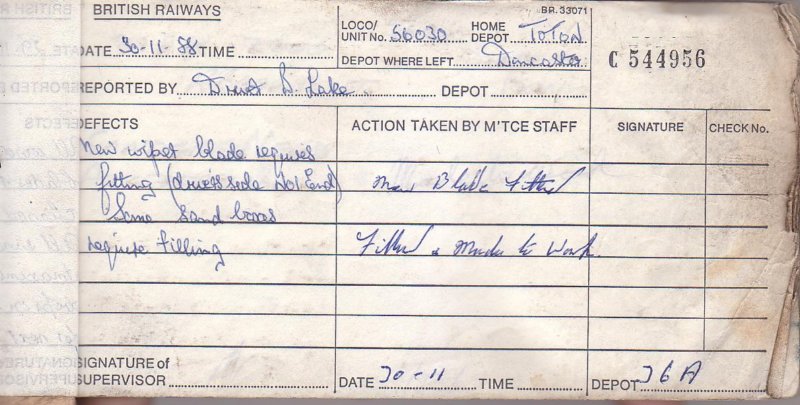 BRITISH RAIWAYS
BR. 33071
DATE 30-11-88 TIME
LOCO/ UNIT No. 56030 HOME DEPOT Toton
DEPOT WHERE LEFT Doncaster
C 544956
REPORTED BY Driver D. Lake. DEPOT
DEFECTS
ACTION TAKEN BY M'TCE STAFF
SIGNATURE
CHECK No.
New wiper blade requires
fitting (drivers side No1 End)
New Blade Fitted
Some sand boxes
require filling
Filled & Made to Work.
SIGNATURE of
SUPERVISOR
DATE 30-11 TIME
DEPOT 36A